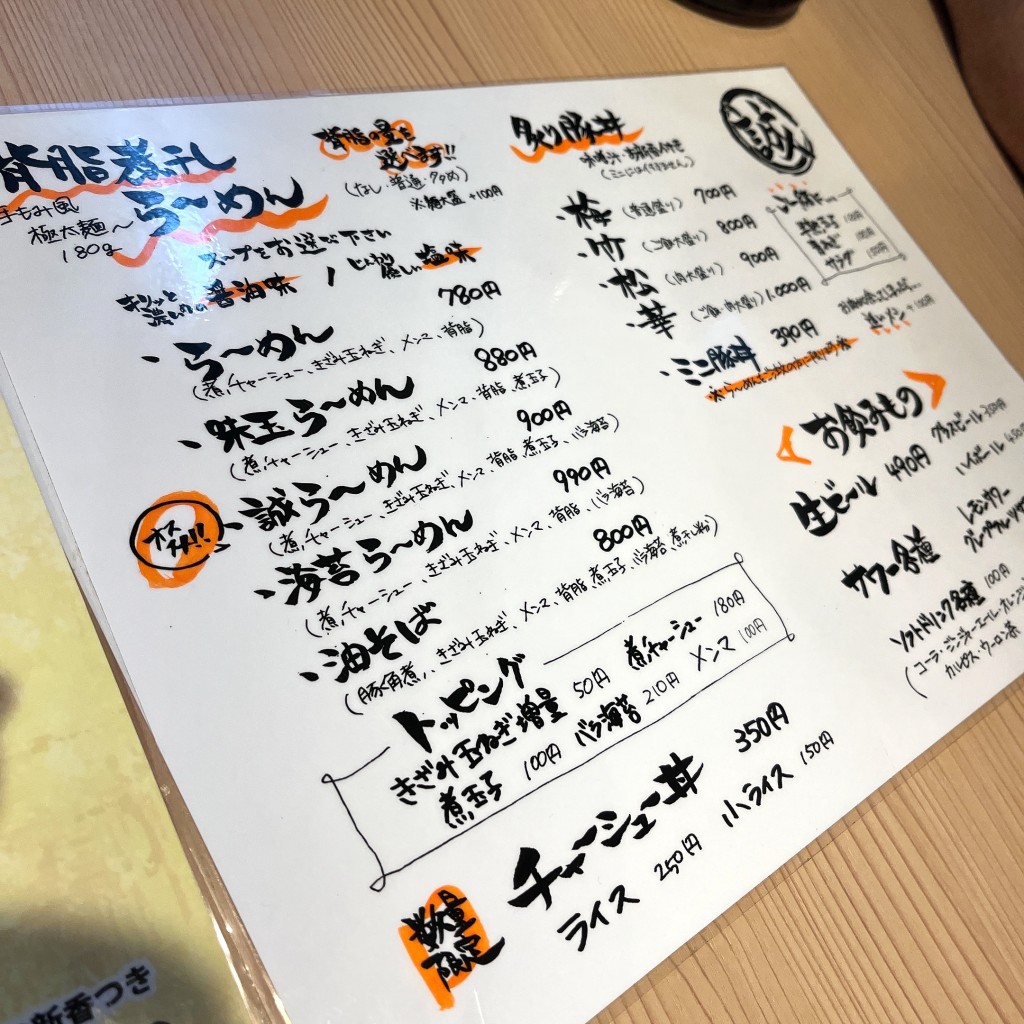 背脂煮干し
らーめん
手もみ風
極太麺〜
180g
背脂の量が
選べます!!
(なし・普通・多め)
※麺大盛 +100円
スープをお選び下さい
キリッと
濃いめの醤油味 / 塩味
・らーめん 780円
(煮チャーシュー、きざみ玉ねぎ、メンマ、背脂)
・味玉らーめん 880円
(煮チャーシュー、きざみ玉ねぎ、メンマ、背脂、煮玉子)
オススメ!!
・誠らーめん 900円
(煮チャーシュー、きざみ玉ねぎ、メンマ、背脂、煮玉子、バラ海苔)
・海苔らーめん 990円
(煮チャーシュー、きざみ玉ねぎ、メンマ、背脂、バラ海苔)
・油そば 800円
(豚角煮、きざみ玉ねぎ、メンマ、背脂、煮玉子、バラ海苔、煮干し粉)
トッピング
きざみ玉ねぎ増量 50円 煮チャーシュー 180円
煮玉子 100円 バラ海苔 210円 メンマ 100円
数量
限定
チャーシュー丼 350円
ライス 250円 小ライス 150円
炙り豚丼
味噌汁・付き
(ミニには付きません)
・梅 (普通盛り) 700円
・竹 (ご飯大盛り) 800円
・松 (肉大盛り) 900円
・華 (ご飯・肉大盛り) 1,000円
・ミニ豚丼 390円
サラダ 100円
お飲みもの
生ビール 490円 グラスビール 350円
ハイボール
サワー各種
レモンサワー
ソフトドリンク各種 100円
(コーラ・ジンジャーエール・オレンジ
カルピス・ウーロン茶
新香つき